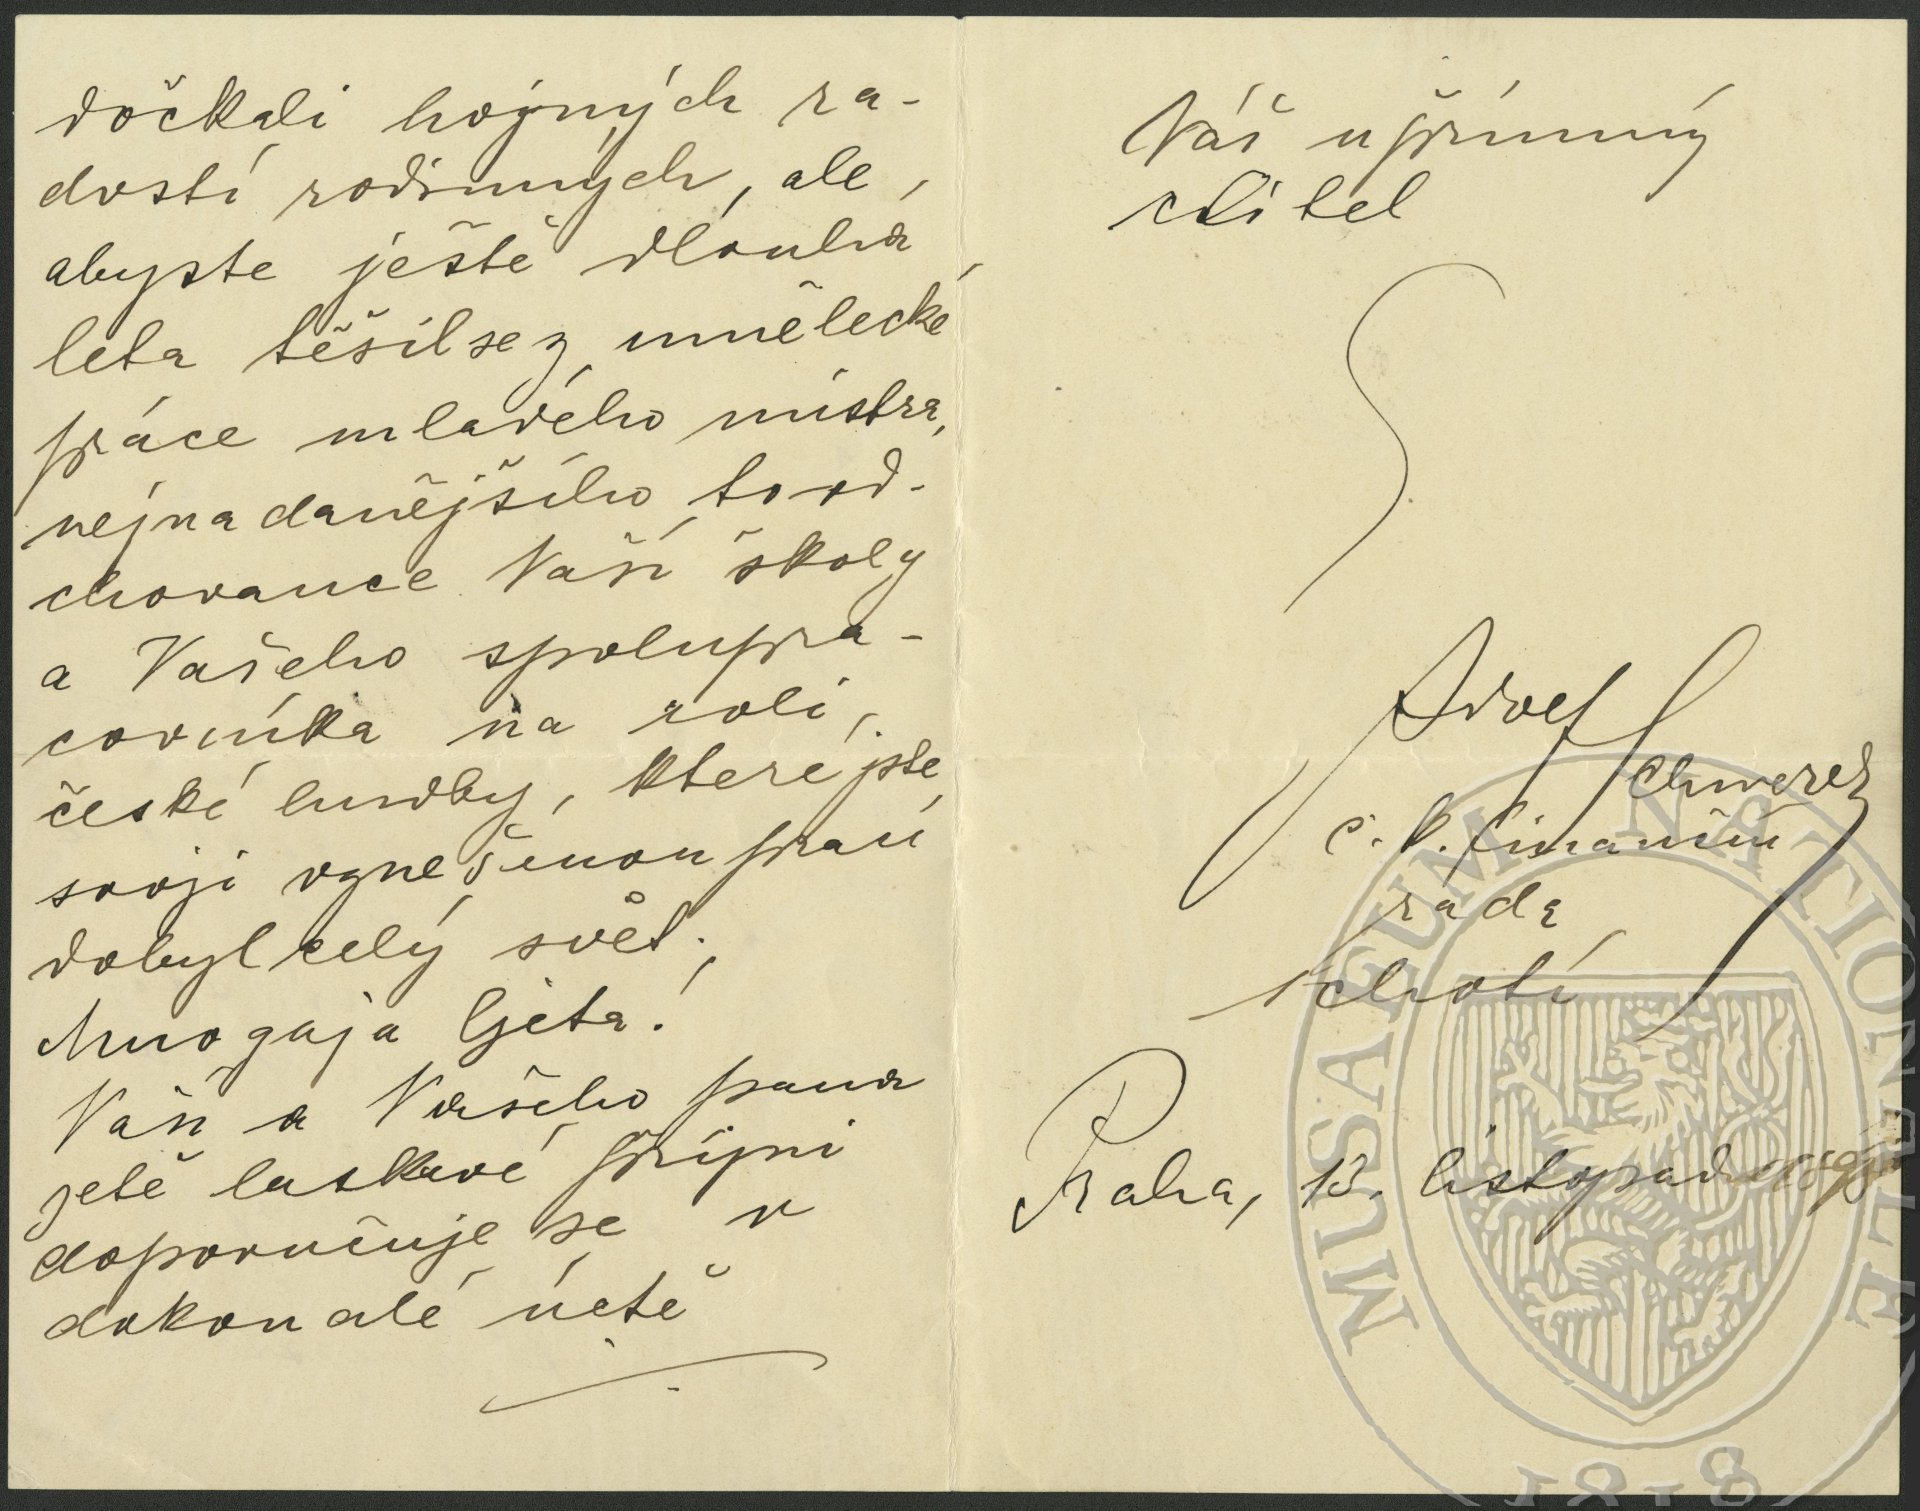 dočkali hojných ra-
dostí rodinných, ale,
abyste ještě dlouhá
leta těšil se z umělecké
práce mladého mistra,
nejnadanějšího to od-
chovance Vaší školy
a Vašeho spolupra-
covníka na roli,
české hudby, které jste,
svojí vznešenou prací
dobyl celý svět;
Mnogaja ljeta!
Vaší a Vašeho pana
zetě laskavé přízni
doporučuje se v
dokonalé úctě
Váš upřímný
ctitel
Adolf
C. k. finanční
rada
Praha, 13. listopad
MUSAEUM NATIONALE
1818